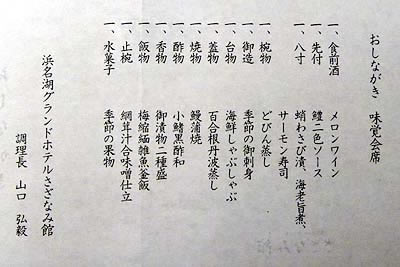 おしながき　味覚会席
一、食前酒　メロンワイン
一、先付　鱧二色ソース
一、八寸　蛸わさび漬、海老旨煮、
サーモン寿司
一、椀物　どびん蒸し
一、御造　季節の御刺身
一、台物　海鮮しゃぶしゃぶ
一、蓋物　百合根丹波蒸し
一、焼物　鰻蒲焼
一、酢物　小鰭黒酢和
一、香物　御漬物二種盛
一、飯物　梅縮緬雑魚釜飯
一、止椀　網茸汁合味噌仕立
一、水菓子　季節の果物
浜名湖グランドホテルさざなみ館
調理長　山口　弘毅